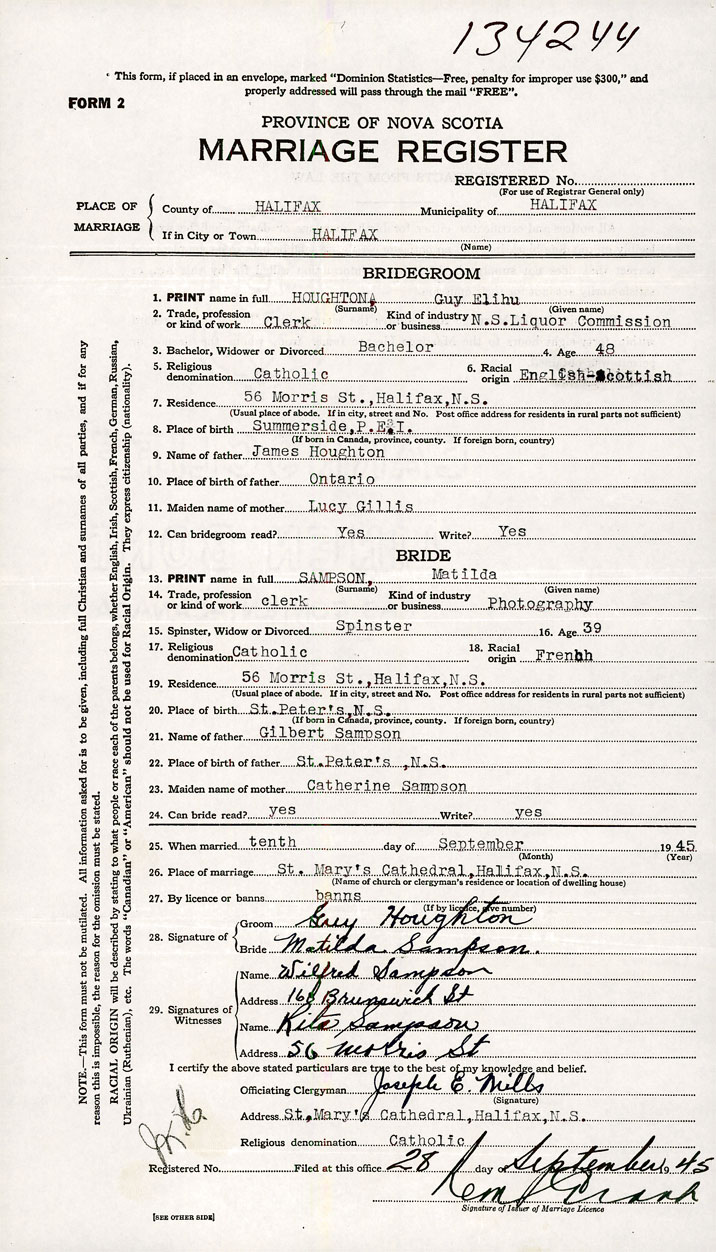 134244
This form, if placed in an envelope, marked "Dominion Statistics—Free, penalty for improper use $300," and
properly addressed will pass through the mail "FREE".
FORM 2
PROVINCE OF NOVA SCOTIA
MARRIAGE REGISTER
REGISTERED No.
(For use of Registrar General only)
PLACE OF MARRIAGE
County of HALIFAX Municipality of HALIFAX
If in City or Town HALIFAX
(Name)
BRIDEGROOM
1. PRINT name in full HOUGHTON, Guy Elihu
(Surname) (Given name)
2. Trade, profession or kind of work Clerk Kind of industry or business N.S.Liquor Commission
3. Bachelor, Widower or Divorced Bachelor 4. Age 48
5. Religious denomination Catholic 6. Racial origin English-Scottish
7. Residence 56 Morris St.,Halifax,N.S.
(Usual place of abode. If in city, street and No. Post office address for residents in rural parts not sufficient)
8. Place of birth Summerside,P.E.I.
(If born in Canada, province, county. If foreign born, country)
9. Name of father James Houghton
10. Place of birth of father Ontario
11. Maiden name of mother Lucy Gillis
12. Can bridegroom read? Yes Write? Yes
BRIDE
13. PRINT name in full SAMPSON, Matilda
(Surname) (Given name)
14. Trade, profession or kind of work clerk Kind of industry or business Photography
15. Spinster, Widow or Divorced Spinster 16. Age 39
17. Religious denomination Catholic 18. Racial origin French
19. Residence 56 Morris St.,Halifax,N.S.
(Usual place of abode. If in city, street and No. Post office address for residents in rural parts not sufficient)
20. Place of birth St.Peter's,N.S.
(If born in Canada, province, county. If foreign born, country)
21. Name of father Gilbert Sampson
22. Place of birth of father St.Peter's ,N.S.
23. Maiden name of mother Catherine Sampson
24. Can bride read? yes Write? yes
25. When married tenth day of September 1945
(Month) (Year)
26. Place of marriage St. Mary's Cathedral,Halifax,N.S.
(Name of church or clergyman's residence or location of dwelling house)
27. By licence or banns banns
(If by licence, give number)
28. Signature of
Groom Guy Houghton
Bride Matilda Sampson.
29. Signatures of Witnesses
Name Wilfred Sampson
Address 168 Brunswick St
Name Rita Sampson
Address 56 Morris St
I certify the above stated particulars are true to the best of my knowledge and belief.
Officiating Clergyman Joseph E. Mills
(Signature)
Address St.Mary's Cathedral,Halifax,N.S.
Religious denomination Catholic
Registered No. Filed at this office 28 day of September 1945
Signature of Issuer of Marriage Licence
[SEE OTHER SIDE]
NOTE.—This form must not be mutilated. All information asked for is to be given, including full Christian and surnames of all parties, and if for any
reason this is impossible, the reason for the omission must be stated.
RACIAL ORIGIN will be described by stating to what people or race each of the parents belongs, whether English, Irish, Scottish, French, German, Russian,
Ukrainian (Ruthenian), etc. The words "Canadian" or "American" should not be used for Racial Origin. They express citizenship (nationality).